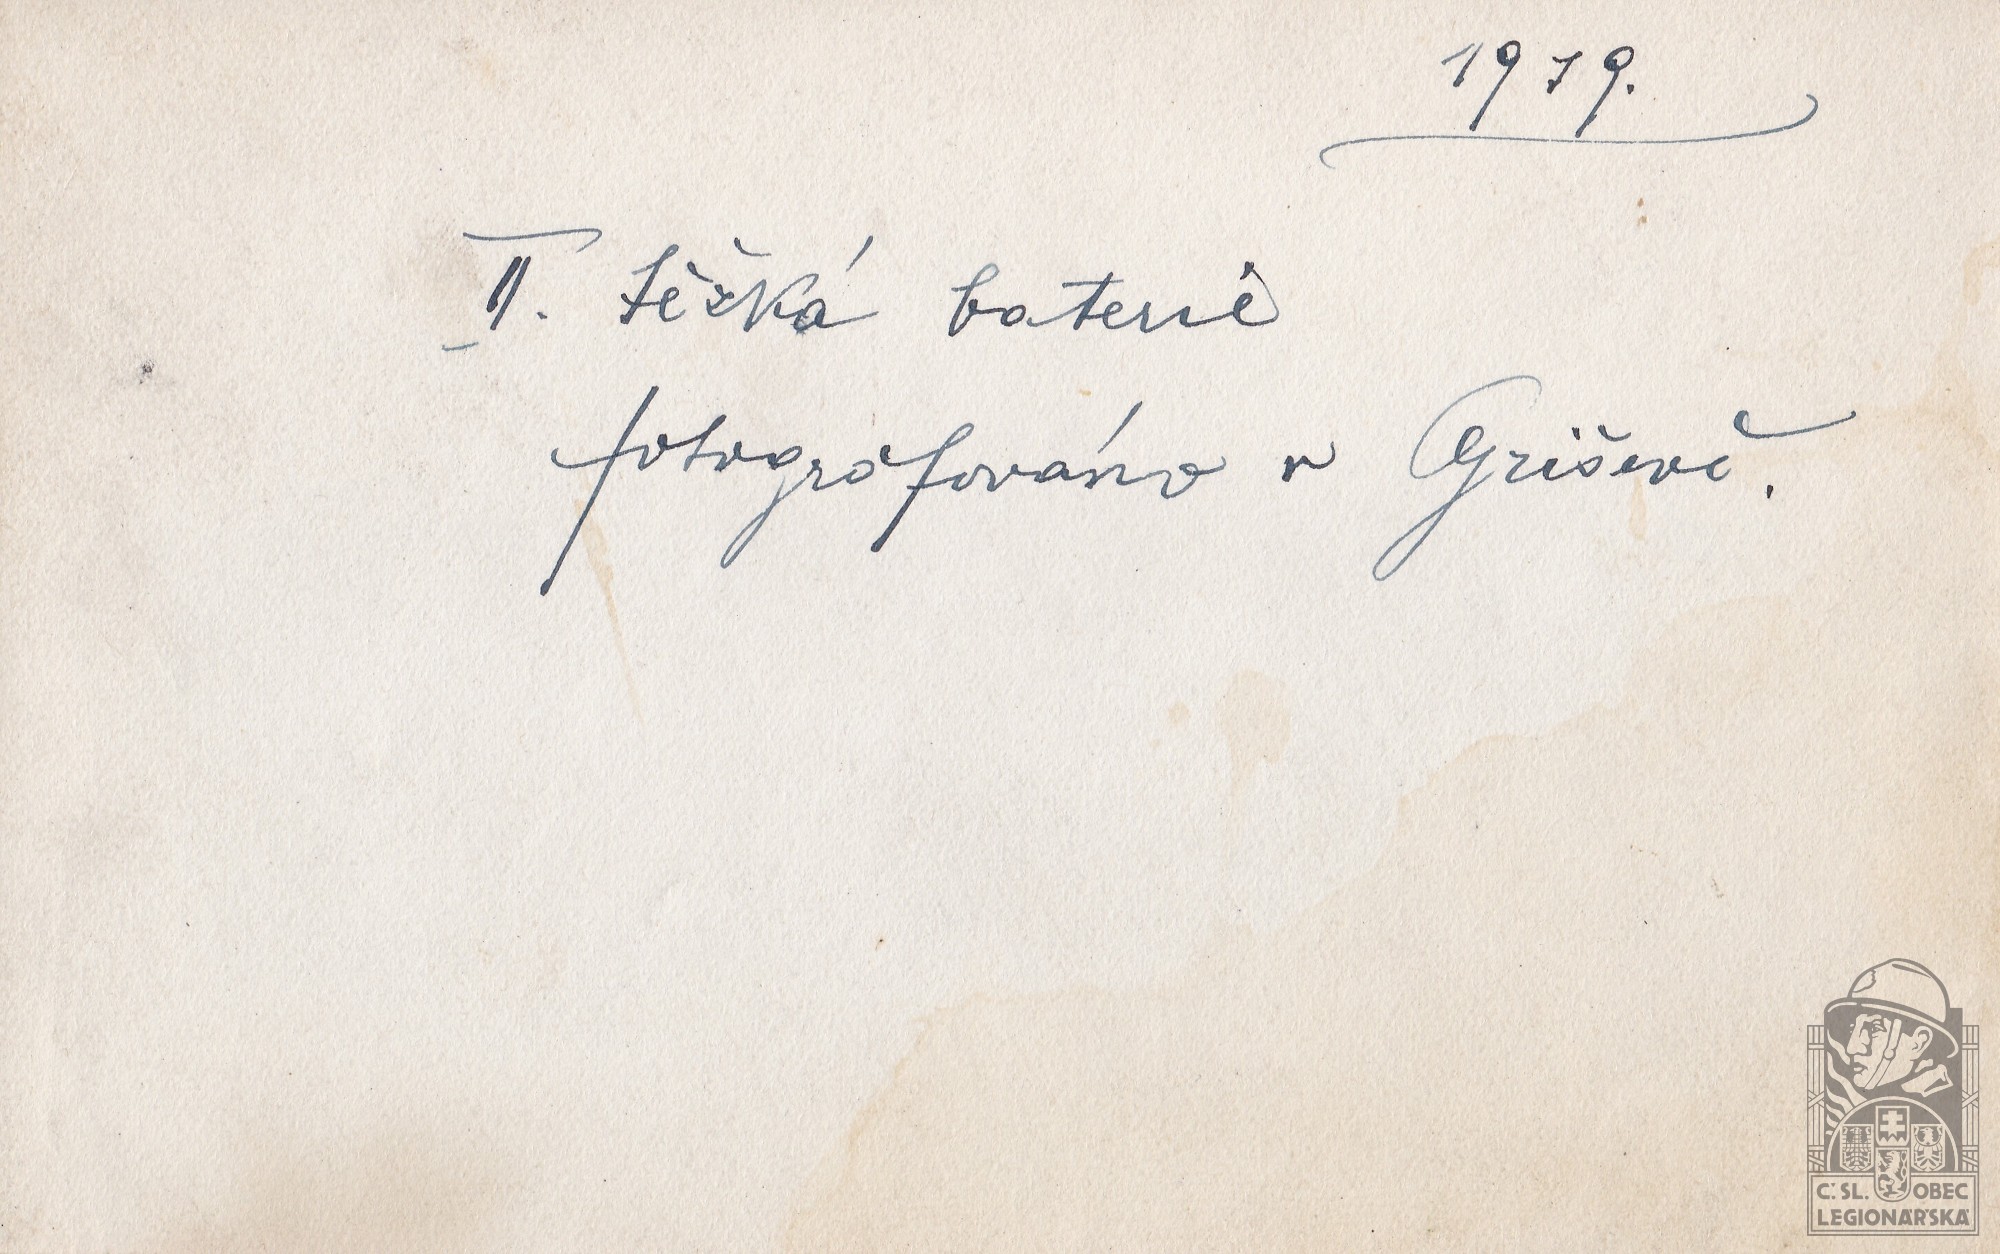 1919.
II. těžká baterie
fotografováno v Griševě.
Č.SL. OBEC
LEGIONÁŘSKÁ